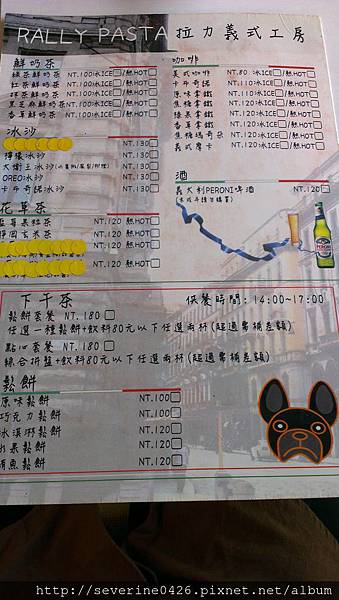 RALLY PASTA 拉力義式工房
鮮奶茶
綠茶鮮奶茶 NT.100冰ICE/熱HOT
紅茶鮮奶茶 NT.100冰ICE/熱HOT
抹茶鮮奶茶 NT.100冰ICE/熱HOT
黑芝麻鮮奶茶 NT.100冰ICE/熱HOT
香草鮮奶茶 NT.100冰ICE/熱HOT
冰沙
NT.130
檸檬冰沙 NT.130
大衛王冰沙 NT.130
OREO冰沙 NT.130
卡布奇諾冰沙 NT.130
花草茶
藍莓果粒茶 NT.120 熱HOT
靜岡玄米茶 NT.120 熱HOT
NT.120 熱HOT
NT.120 熱HOT
NT.120 熱HOT
咖啡
美式咖啡 NT.80 冰ICE/熱HOT
卡布奇諾 NT.110冰ICE/熱HOT
原味拿鐵 NT.110冰ICE/熱HOT
焦糖拿鐵 NT.120冰ICE/熱HOT
榛果拿鐵 NT.120冰ICE/熱HOT
香草拿鐵 NT.120冰ICE/熱HOT
焦糖瑪奇朵 NT.120冰ICE/熱HOT
義式摩卡 NT.120冰ICE/熱HOT
酒
義大利PERONI啤酒 NT.120
(未成年請勿購買)
下午茶 供餐時間:14:00~17:00
鬆餅套餐 NT.180
任選一種鬆餅+飲料80元以下任選兩杯(超過需補差額)
點心套餐 NT.180
綜合拼盤+飲料80元以下任選兩杯(超過需補差額)
鬆餅
原味鬆餅 NT.100
巧克力鬆餅 NT.100
冰淇淋鬆餅 NT.120
水果鬆餅 NT.120
鮪魚鬆餅 NT.120
http://severine0426.pixnet.net/album